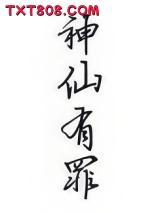 TXT808.COM
神仙有罪